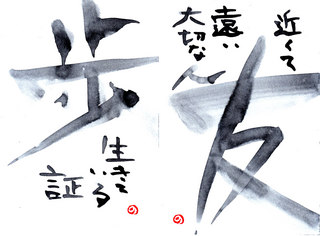 近くて
遠い
大切な人
友
歩
生きて
いる
証